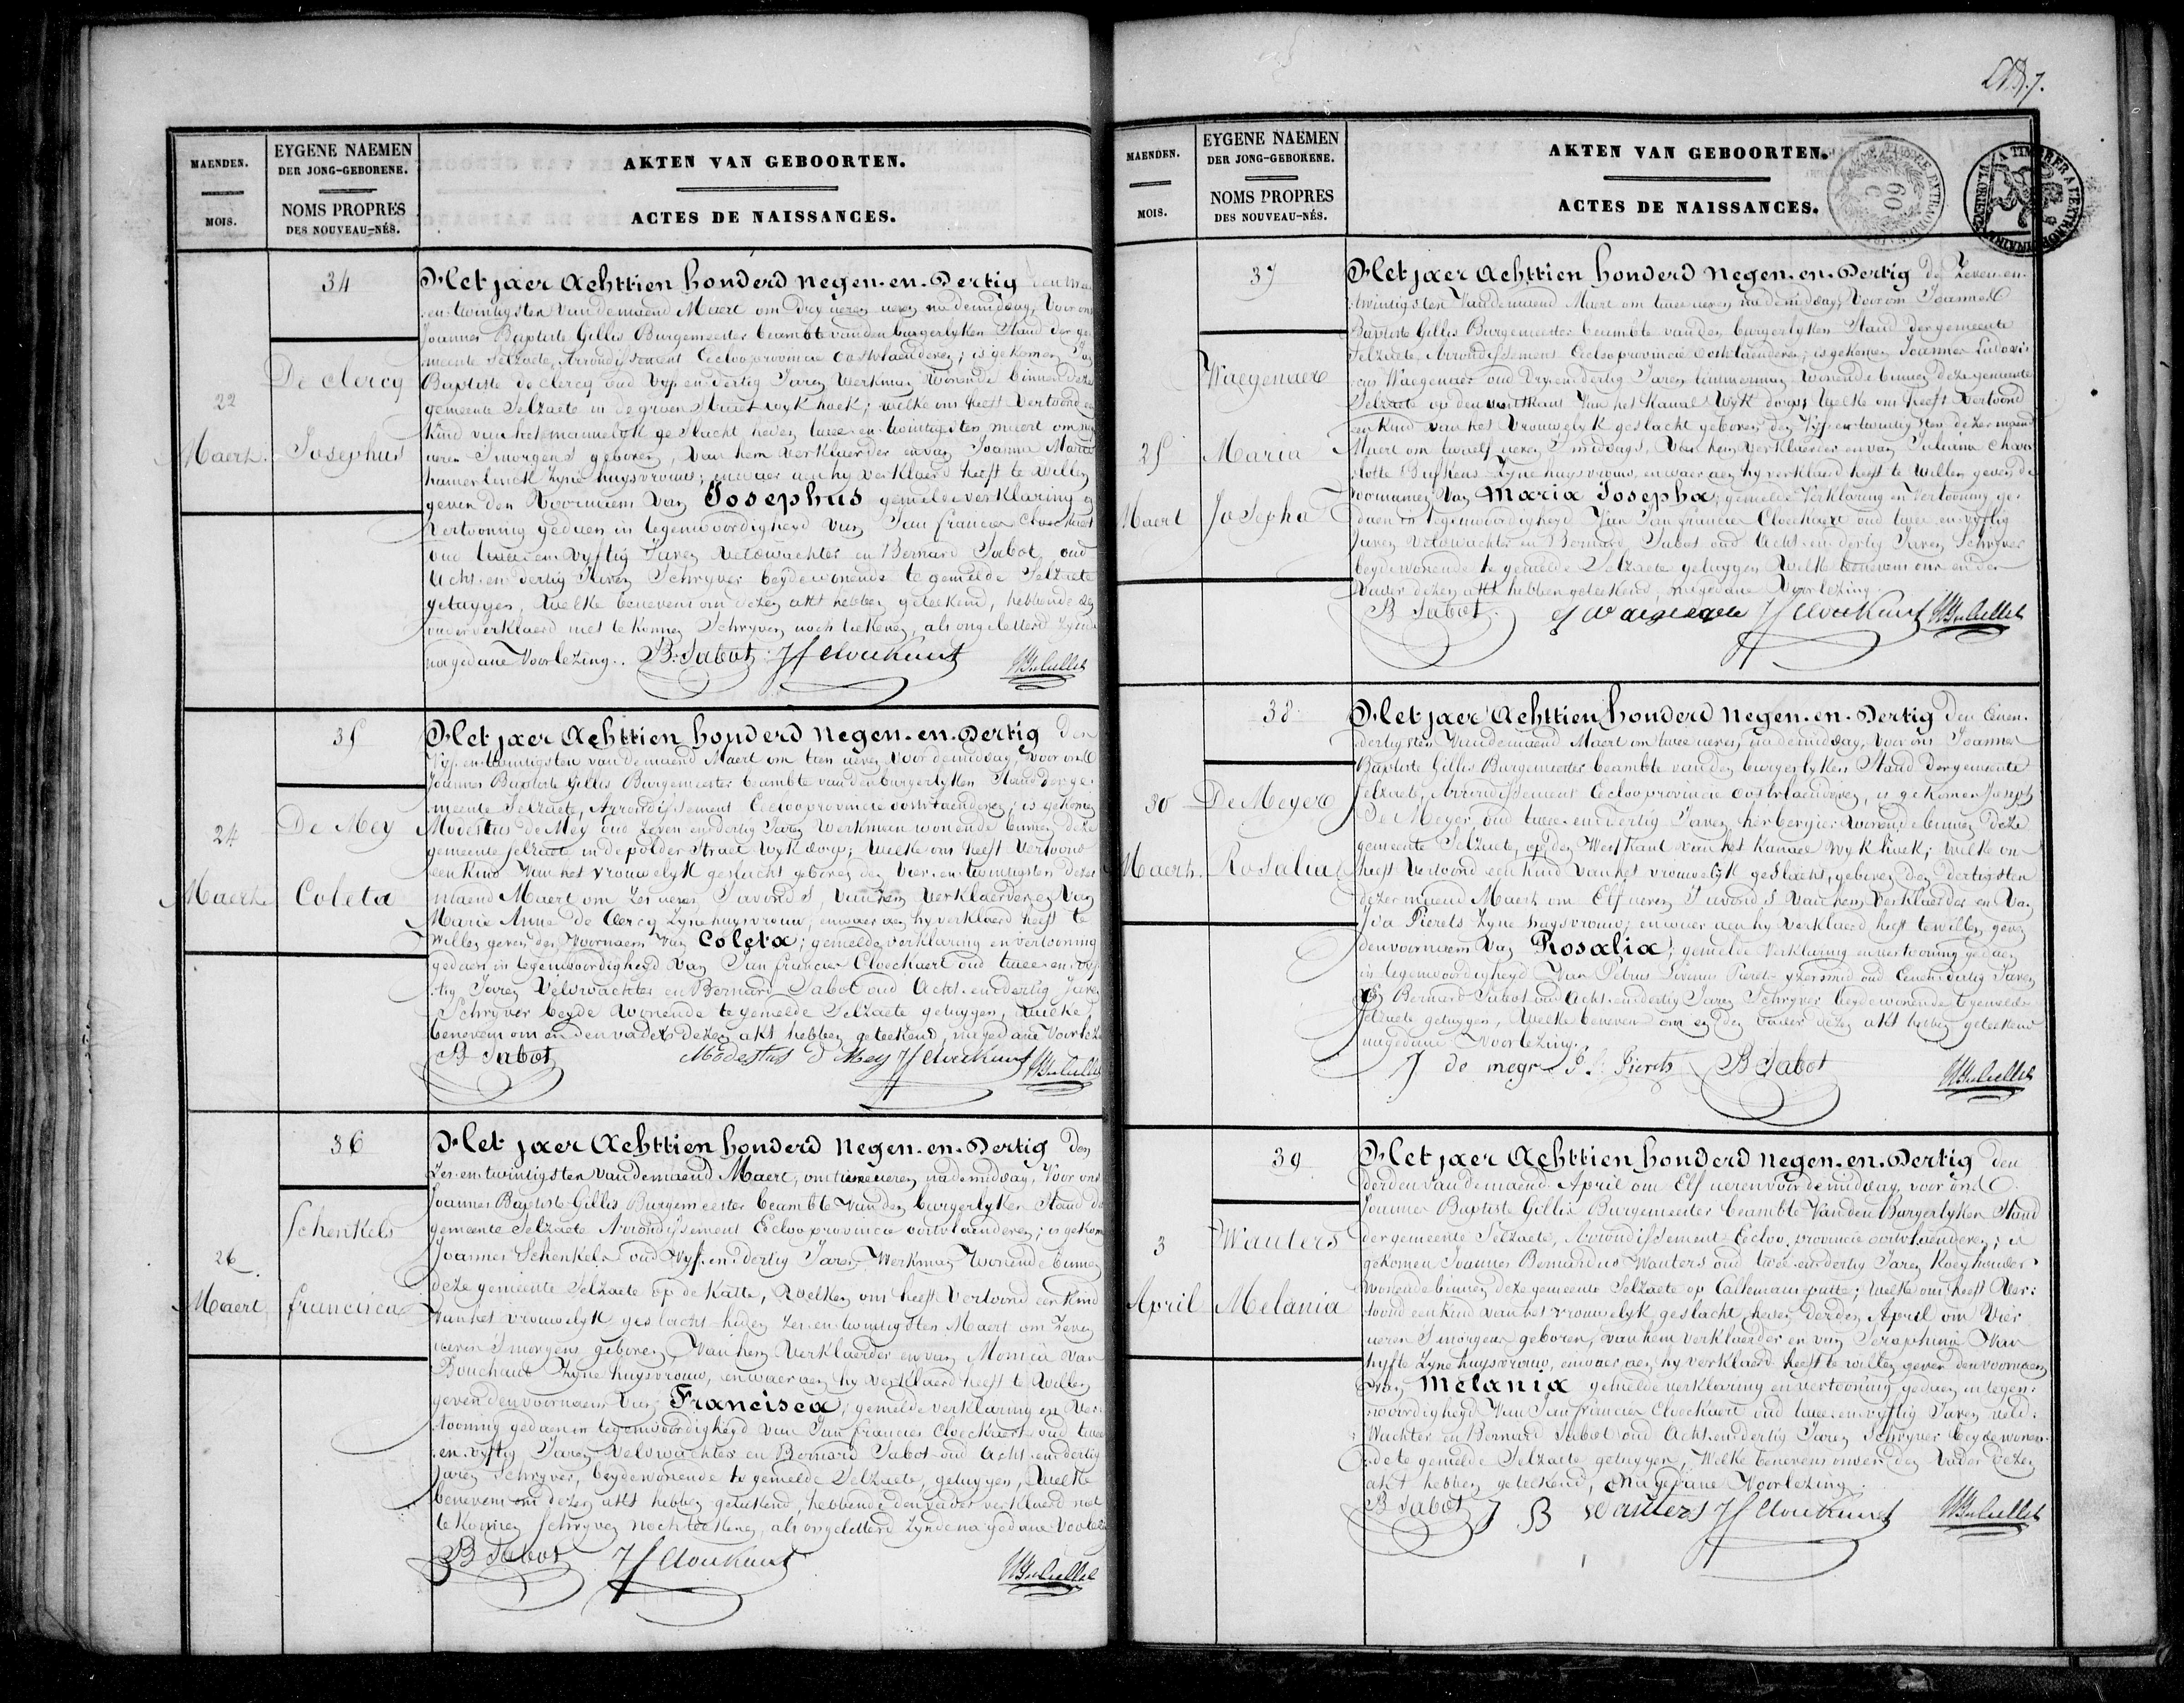 MAENDEN.
MOIS.
EYGENE NAEMEN
DER JONG-GEBORENE.
NOMS PROPRES
DES NOUVEAU-NÉS.
AKTEN VAN GEBOORTEN.
ACTES DE NAISSANCES.
34
De Clercq
22
Maert.
Josephus
Het jaer Achttien honderd negen-en-Dertig den twee
en-twintigsten van de maend Maert om dry uren nademiddag, Voor ons
Joannes Baptiste Gillis Burgemeester beambte van den burgerlyken Stand der ge
meente Selzaete, Arrondissement Eecloo provincie Oostvlaenderen; is gekomen
Baptiste de Clercq oud Vyf-en-dertig Jaren Werkman Wonende binnen deze
gemeente Selzaete in de groen Straet wyk hoek; welke ons heeft Vertoond een
Kind van het mannelyk geslacht heden twee-en-twintigsten maert om
uren Smorgens geboren, Van hem Verklaerder en van Joanna Maria
hamerlinck Zyne huysvrouw; en waer aen hy verklaerd heeft te Willen
geven den Voornaem Van Josephus gemelde verklaring en
Vertooning gedaen in tegenwoordigheyd Van Jan francies Cloeckaert
oud twee-en-Vyftig Jaren Veldwachter en Bernard Sabot oud
Acht-en dertig Jaren Schryver beyde wonende te gemelde Selzaete
getuygen, Welke benevens ons dezen akt hebben geteekend, hebbende den
vader verklaerd niet te konnen Schryven noch teekenen, als ongeletterd Zynde
nagedane Voorlezing. B: Sabot JF Cloeckaert
35
De Mey
24
Maert.
Coleta
Het jaer Achttien honderd negen-en-Dertig den
Vyf-en-twintigsten van de maend Maert om tien uren Voor demiddag, voor ons
Joannes Baptiste Gillis Burgemeester beambte van den burgerlyken Stand der ge
meente Selzaete, Arrondissement Eecloo provincie oostvlaenderen; is gekomen
Modestus De Mey oud Zeven-en-dertig Jaren Werkman wonende binnen deze
gemeente Selzaete in de polder Straet wyk dorp; Welke ons heeft Vertoond
een Kind Van het vrouwelyk geslacht geboren den Vier-en-twintigsten dezer
maend Maert om Zes uren, Savonds, Van hem Verklaerder en Van
Marie Anne De Clercq Zyne huysvrouw, en waer aen hy verklaerd heeft te
Willen geven den Voornaem Van Coleta; gemelde verklaring en vertooning
gedaen in tegenwoordigheyd Van Jan francies Cloeckaert oud twee-en-vyf
tig Jaren Veldwachter en Bernard Sabot oud Acht-en-dertig Jaren
Schryver beyde Wonende te gemelde Selzaete getuygen, Welke
benevens ons en den vader dezen akt hebben geteekend, nagedane Voorlez
B Sabot Modestus d Mey JF Cloeckaert
36
Schenkels
26
Maert
francisca
Het jaer Achttien honderd negen-en-Dertig den
Zes-en-twintigsten van de maend Maert, om twee uren nademiddag, Voor ons
Joannes Baptiste Gillis Burgemeester beambte Van den burgerlyken Stand der
gemeente Selzaete Arrondissement Eecloo provincie oostvlaenderen; is gekomen
Joannes Schenkels oud Vyf-en-dertig Jaren Werkman Wonende binnen
deze gemeente Selzaete op de Katte, Welken ons heeft Vertoond een Kind
Van het vrouwelyk geslacht heden Zes-en-twintigsten Maert om Zeven
uren Smorgens geboren, Van hem Verklaerder en van Monica Van
Bouchaut Zyne huysvrouw, en waer aen hy Verklaerd heeft te Willen
geven den voornaem Van Francisca; gemelde verklaring en Ver
tooning gedaen in tegenwoordigheyd van Jan francies Cloeckaert oud twee
en-vyftig Jaren Veldwachter en Bernard Sabot oud Acht-en-dertig
Jaren Schryver, beyde wonende te gemelde Selzaete, getuygen, Welke
benevens ons dezen akt hebben geteekend, hebbende den vader verklaerd niet
te Konnen Schryven noch teekenen, als ongeletterd Zynde nagedane Voorlez
B Sabot JF Cloeckaert
MAENDEN.
MOIS.
EYGENE NAEMEN
DER JONG-GEBORENE.
NOMS PROPRES
DES NOUVEAU-NÉS.
AKTEN VAN GEBOORTEN.
ACTES DE NAISSANCES.
37
Waegenaere
25
Maert
Maria
Josepha
Het jaer Achttien honderd negen-en-Dertig de Zeven-en-
twintigsten Van de maend Maert om twee uren nademiddag, Voor ons Joannes
Baptiste Gillis Burgemeester beambte van den burgerlyken Stand der gemeente
Selzaete, Arrondissement Eecloo provincie oostvlaenderen; is gekomen Joannes Ludovi
cus Waegenaer oud Dry-en-dertig Jaren timmerman Wonende binnen deze gemeente
Selzaete op den Westkant Van het Kanael Wyk dorp; Welke ons heeft Vertoond
een Kind van het Vrouwelyk geslacht geboren, den Vyf-en-twintigsten dezer maend
Maert om twaelf uren Smiddags, Van hem Verklaerder en van Juliana Char
lotte Zyne huysvrouw, en waer aen hy verklaerd heeft te Willen geven de
voornamen Van Maria Josepha; gemelde Verklaring en Vertooning ge
daen in tegenwoordigheyd Van Jan francies Cloeckaert oud twee-en-vyftig
Jaren Veldwachter en Bernard Sabot oud Acht-en-dertig Jaren Schryver
beyde wonende te gemelde Selzaete getuygen Welke benevens ons en den
Vader dezen akt hebben geteekend, nagedane Voorlezing.
B Sabot. JF Cloeckaert
38
De Meyer
30
Maert.
Rosalia
Het jaer Achttien honderd negen-en-Dertig den Eenen-
dertigsten Van de maend Maert om twee uren, nademiddag, Voor ons Joannes
Baptiste Gillis Burgemeester beambte van den burgerlyken Stand der gemeente
Selzaete, Arrondissement Eecloo provincie Oostvlaenderen, is gekomen Joseph
De Meyer, oud twee-en-dertig Jaren herbergier Wonende binnen deze
gemeente Selzaete, op den Westkant van het Kanael Wyk hoek; Welke ons
heeft Vertoond een kind Van het vrouwelyk geslacht, geboren den dertigsten
dezer maend Maert om Elf uren Savonds Van hem Verklaerder en Van
Ida Pierets Zyne huysvrouw; en waer aen hy Verklaerd heeft te willen geven
den voornaem Van Rosalia; gemelde Verklaring en vertooning gedaen
in tegenwoordigheyd Van Petrus Livinus Pierets yzersmid oud Een-en-dertig Jaren
en Bernard Sabot oud Acht-en-dertig Jaren Schryver beyde wonende te gemelde
Selzaete getuygen, Welke benevens ons en den vader dezen akt hebben geteekend
nagedane Voorlezing.
J de meyr P. L. Pierets B Sabot
39
Wauters
3
April
Melania
Het jaer Achttien honderd negen-en-Dertig den
derden van de maend April om Elf uren voor demiddag, voor ons
Joannes Baptiste Gillis Burgemeester beambte Van den Burgerlyken Stand
der gemeente Selzaete, Arrondissement Eecloo, provincie oostvlaenderen; is
gekomen Joannes Bernardus Wauters oud twee-en-dertig Jaren Koeyhouder
wonende binnen deze gemeente Selzaete op Callemansputte; Welke ons heeft Ver
toond een kind van het vrouwelyk geslacht heden derden April om Vier
uren Smorgens geboren, van hem verklaerder en van Seraphina Van
hyfte Zyne huysvrouw, en waer aen hy verklaerd heeft te willen geven den voornaem
Van Melania gemelde verklaring en vertooning gedaen in tegen
woordigheyd Van Jan francies Cloeckaert oud twee-en-vyftig Jaren veld
Wachter en Bernard Sabot oud Acht-en-dertig Jaren Schryver beyde wonen
de te gemelde Selzaete getuygen, Welke benevens ons en den Vader dezen
akt hebben geteekend, nagedane Voorlezing.
B Sabot J B Wauters JF Cloeckaert